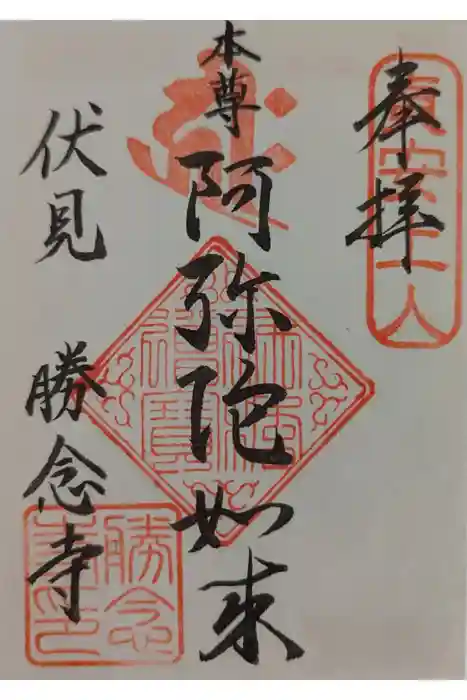 奉拝
本尊
阿弥陀如来
伏見 勝念寺